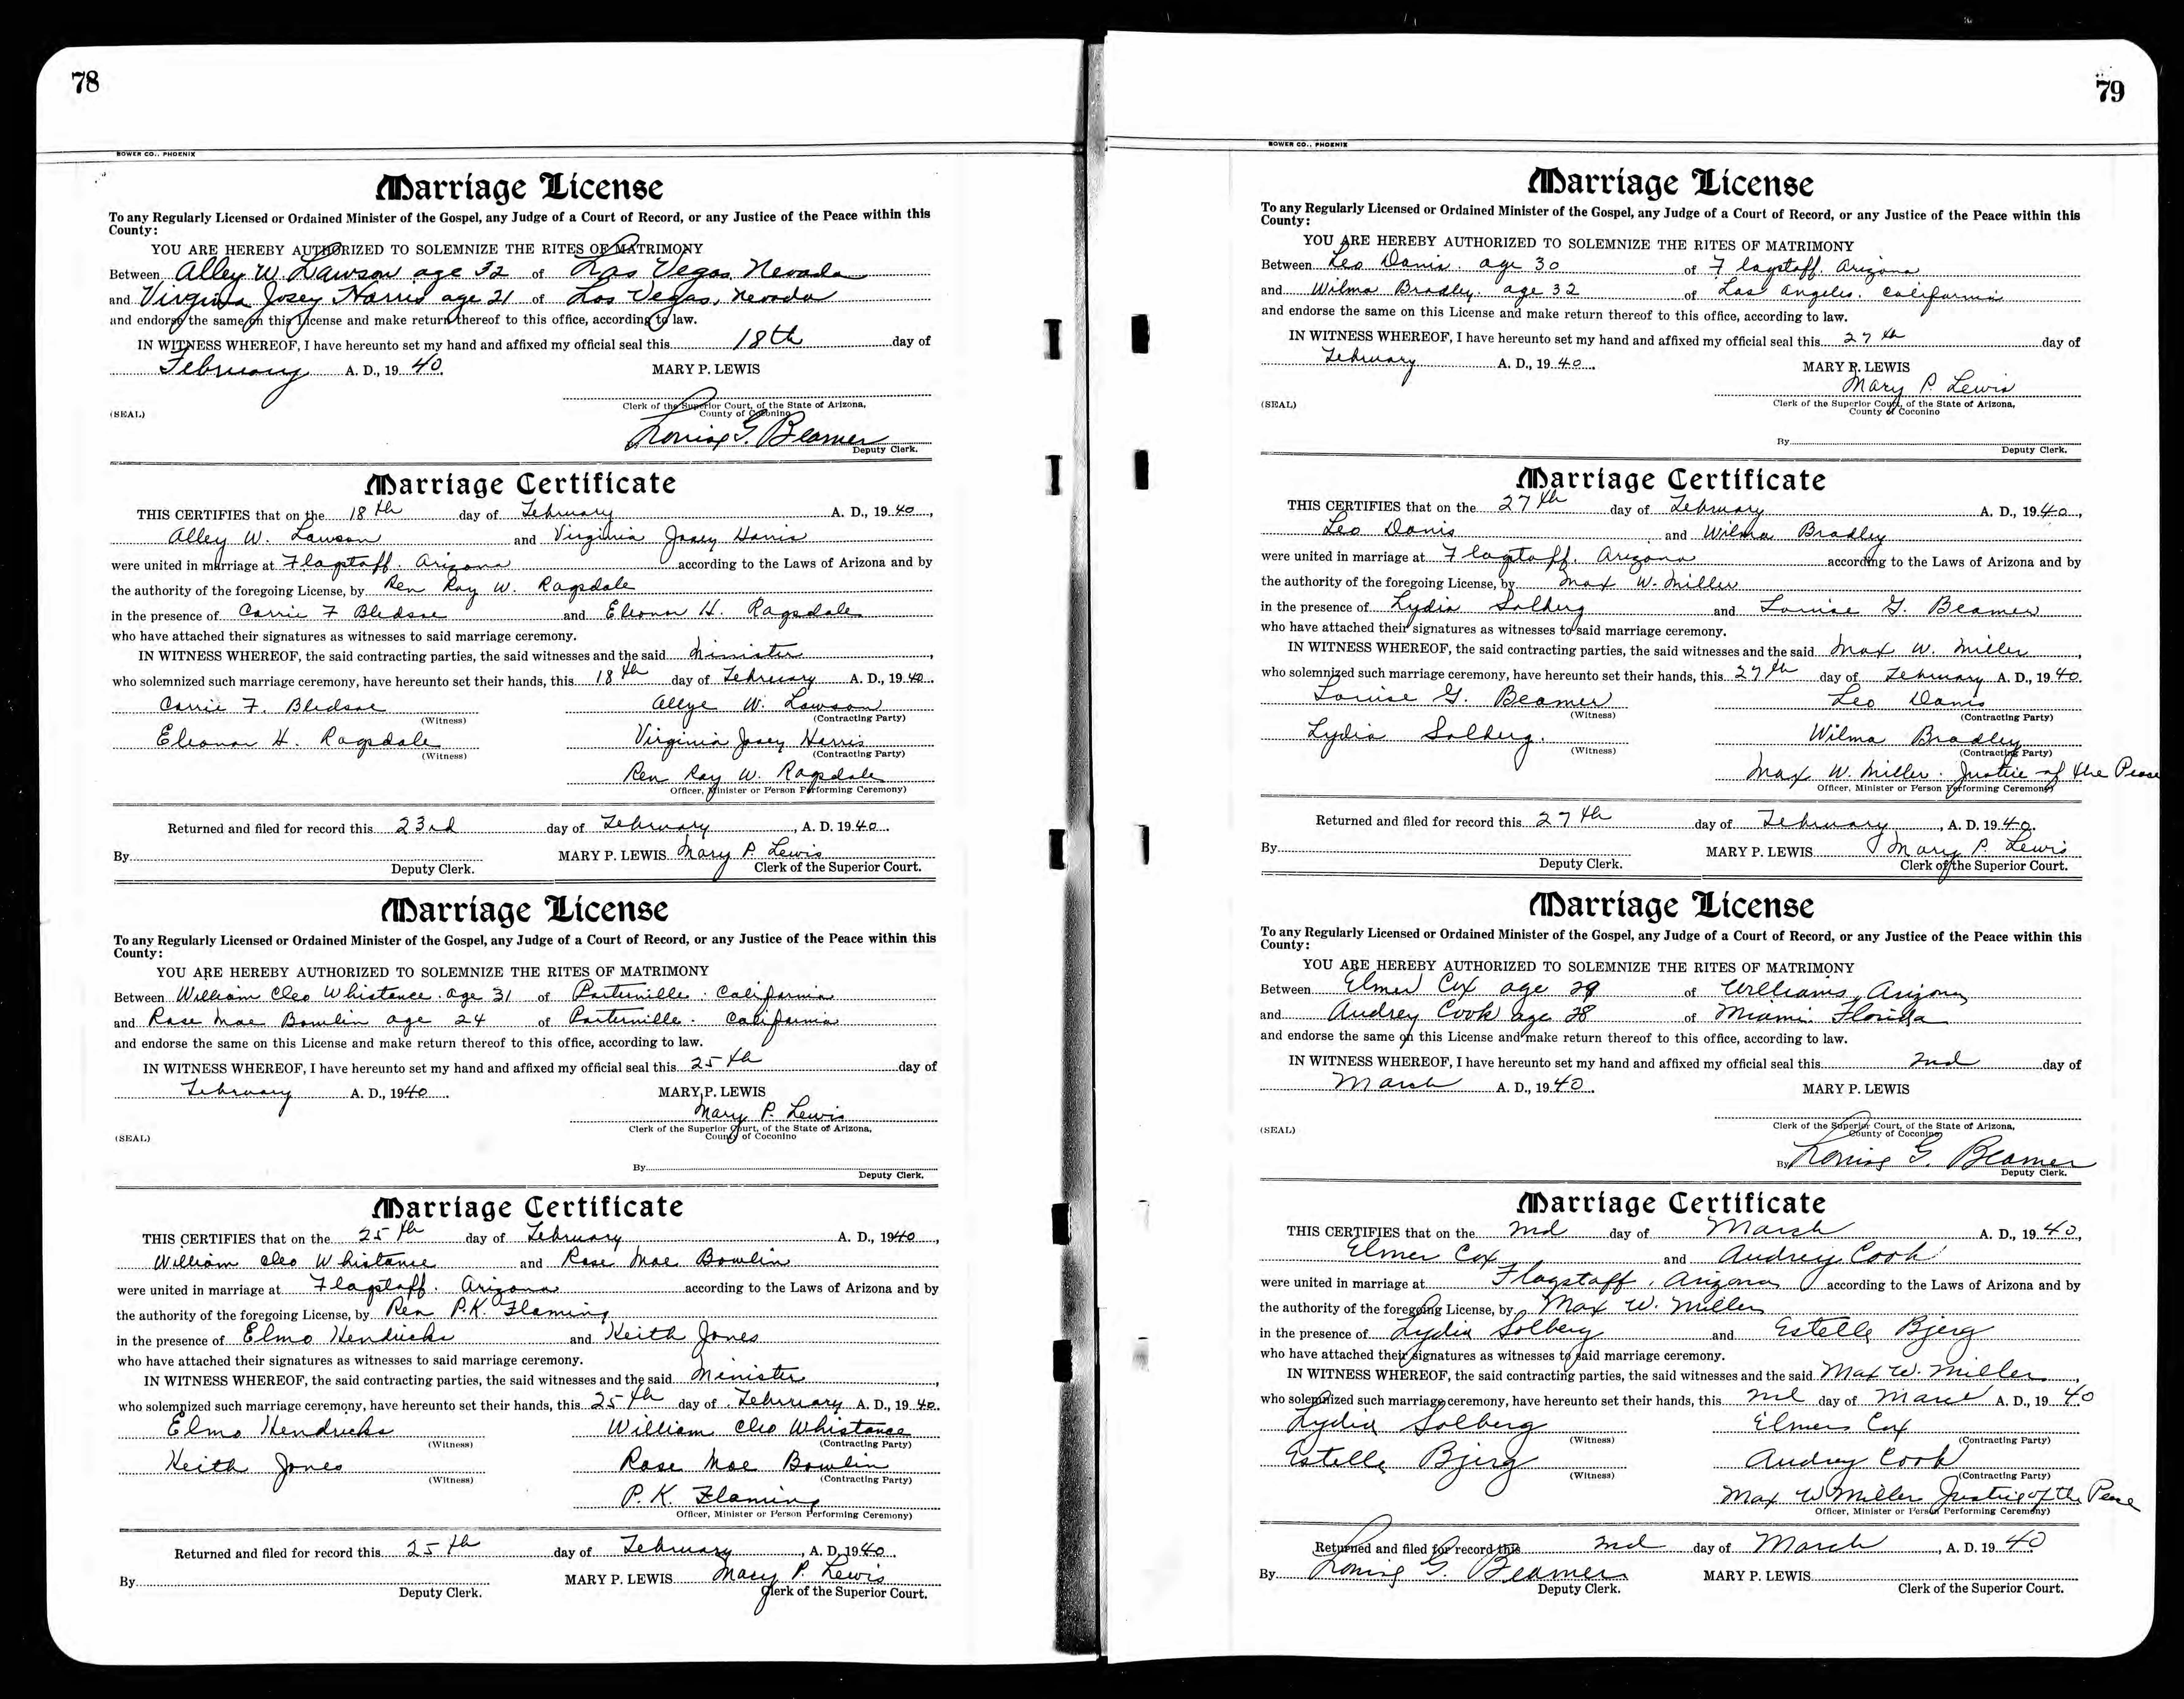 78
BOWER CO., PHOENIX
Marriage License
To any Regularly Licensed or Ordained Minister of the Gospel, any Judge of a Court of Record, or any Justice of the Peace within this
County:
YOU ARE HEREBY AUTHORIZED TO SOLEMNIZE THE RITES OF MATRIMONY
Between Alley W. Lawson age 32 of Las Vegas, Nevada
and Virginia Josey Harris age 21 of Las Vegas, Nevada
and endorse the same on this License and make return thereof to this office, according to law.
IN WITNESS WHEREOF, I have hereunto set my hand and affixed my official seal this 18th day of
February A. D., 19 40.
MARY P. LEWIS
Clerk of the Superior Court, of the State of Arizona,
(SEAL) County of Coconino
Louise G. Beamer
Deputy Clerk.
Marriage Certificate
THIS CERTIFIES that on the 18th day of February A. D., 19 40,
Alley W. Lawson and Virginia Josey Harris
were united in marriage at Flagstaff. Arizona according to the Laws of Arizona and by
the authority of the foregoing License, by Rev Ray W. Ragsdale
in the presence of Carrie F Bledsoe and Eleanor H. Ragsdale
who have attached their signatures as witnesses to said marriage ceremony.
IN WITNESS WHEREOF, the said contracting parties, the said witnesses and the said Minister,
who solemnized such marriage ceremony, have hereunto set their hands, this 18th day of February A. D., 19 40.
Carrie F. Bledsoe (Witness) Allye W. Lawson (Contracting Party)
Eleanor H. Ragsdale (Witness) Virginia Josey Harris (Contracting Party)
Rev Ray W. Ragsdale
Officer, Minister or Person Performing Ceremony)
Returned and filed for record this 23rd day of February, A. D. 19 40.
By MARY P. LEWIS Mary P. Lewis
Deputy Clerk. Clerk of the Superior Court.
Marriage License
To any Regularly Licensed or Ordained Minister of the Gospel, any Judge of a Court of Record, or any Justice of the Peace within this
County:
YOU ARE HEREBY AUTHORIZED TO SOLEMNIZE THE RITES OF MATRIMONY
Between William Cleo Whistance. age 31 of Porterville. California
and Rose Mae Bowlin age 24 of Porterville. California
and endorse the same on this License and make return thereof to this office, according to law.
IN WITNESS WHEREOF, I have hereunto set my hand and affixed my official seal this 25th day of
February A. D., 1940.
MARY P. LEWIS
Mary P. Lewis
Clerk of the Superior Court, of the State of Arizona,
(SEAL) County of Coconino
By
Deputy Clerk.
Marriage Certificate
THIS CERTIFIES that on the 25th day of February A. D., 1940,
William Cleo Whistance and Rose Mae Bowlin
were united in marriage at Flagstaff. Arizona according to the Laws of Arizona and by
the authority of the foregoing License, by Rev P.K. Flaming
in the presence of Elmo Hendricks and Keith Jones
who have attached their signatures as witnesses to said marriage ceremony.
IN WITNESS WHEREOF, the said contracting parties, the said witnesses and the said Minister,
who solemnized such marriage ceremony, have hereunto set their hands, this 25th day of February A. D., 19 40.
Elmo Hendricks (Witness) William Cleo Whistance (Contracting Party)
Keith Jones (Witness) Rose Mae Bowlin (Contracting Party)
P. K. Flaming
Officer, Minister or Person Performing Ceremony)
Returned and filed for record this 25th day of February, A. D. 1940.
By MARY P. LEWIS Mary P. Lewis
Deputy Clerk. Clerk of the Superior Court.
79
BOWER CO., PHOENIX
Marriage License
To any Regularly Licensed or Ordained Minister of the Gospel, any Judge of a Court of Record, or any Justice of the Peace within this
County:
YOU ARE HEREBY AUTHORIZED TO SOLEMNIZE THE RITES OF MATRIMONY
Between Leo Danis. age 30 of Flagstaff. Arizona
and Wilma Bradley. age 32 of Los Angeles. California
and endorse the same on this License and make return thereof to this office, according to law.
IN WITNESS WHEREOF, I have hereunto set my hand and affixed my official seal this 27th day of
February A. D., 19 40.
MARY P. LEWIS
Mary P. Lewis
Clerk of the Superior Court, of the State of Arizona,
(SEAL) County of Coconino
By
Deputy Clerk.
Marriage Certificate
THIS CERTIFIES that on the 27th day of February A. D., 19 40,
Leo Danis and Wilma Bradley
were united in marriage at Flagstaff. Arizona according to the Laws of Arizona and by
the authority of the foregoing License, by Max W. Miller
in the presence of Lydia Solberg and Louise G. Beamer
who have attached their signatures as witnesses to said marriage ceremony.
IN WITNESS WHEREOF, the said contracting parties, the said witnesses and the said Max W. Miller,
who solemnized such marriage ceremony, have hereunto set their hands, this 27th day of February A. D., 19 40.
Louise G. Beamer (Witness) Leo Danis (Contracting Party)
Lydia Solberg. (Witness) Wilma Bradley (Contracting Party)
Max W. Miller. Justice of the Peace
Officer, Minister or Person Performing Ceremony)
Returned and filed for record this 27th day of February, A. D. 19 40.
By MARY P. LEWIS Mary P. Lewis
Deputy Clerk. Clerk of the Superior Court.
Marriage License
To any Regularly Licensed or Ordained Minister of the Gospel, any Judge of a Court of Record, or any Justice of the Peace within this
County:
YOU ARE HEREBY AUTHORIZED TO SOLEMNIZE THE RITES OF MATRIMONY
Between Elmer Cox age 29 of Williams, Arizona
and Audrey Cook age 28 of Miami Florida
and endorse the same on this License and make return thereof to this office, according to law.
IN WITNESS WHEREOF, I have hereunto set my hand and affixed my official seal this 2nd day of
March A. D., 19 40.
MARY P. LEWIS
Clerk of the Superior Court, of the State of Arizona,
(SEAL) County of Coconino
By Louise G. Beamer
Deputy Clerk.
Marriage Certificate
THIS CERTIFIES that on the 2nd day of March A. D., 19 40,
Elmer Cox and Audrey Cook
were united in marriage at Flagstaff, Arizona according to the Laws of Arizona and by
the authority of the foregoing License, by Max W. Miller
in the presence of Lydia Solberg and Estelle Bjerg
who have attached their signatures as witnesses to said marriage ceremony.
IN WITNESS WHEREOF, the said contracting parties, the said witnesses and the said Max W. Miller,
who solemnized such marriage ceremony, have hereunto set their hands, this 2nd day of March A. D., 19 40
Lydia Solberg (Witness) Elmer Cox (Contracting Party)
Estelle Bjerg (Witness) Audrey Cook (Contracting Party)
Max W Miller Justice of the Peace
Officer, Minister or Person Performing Ceremony)
Returned and filed for record this 2nd day of March, A. D. 19 40
By Louise G. Beamer MARY P. LEWIS
Deputy Clerk. Clerk of the Superior Court.